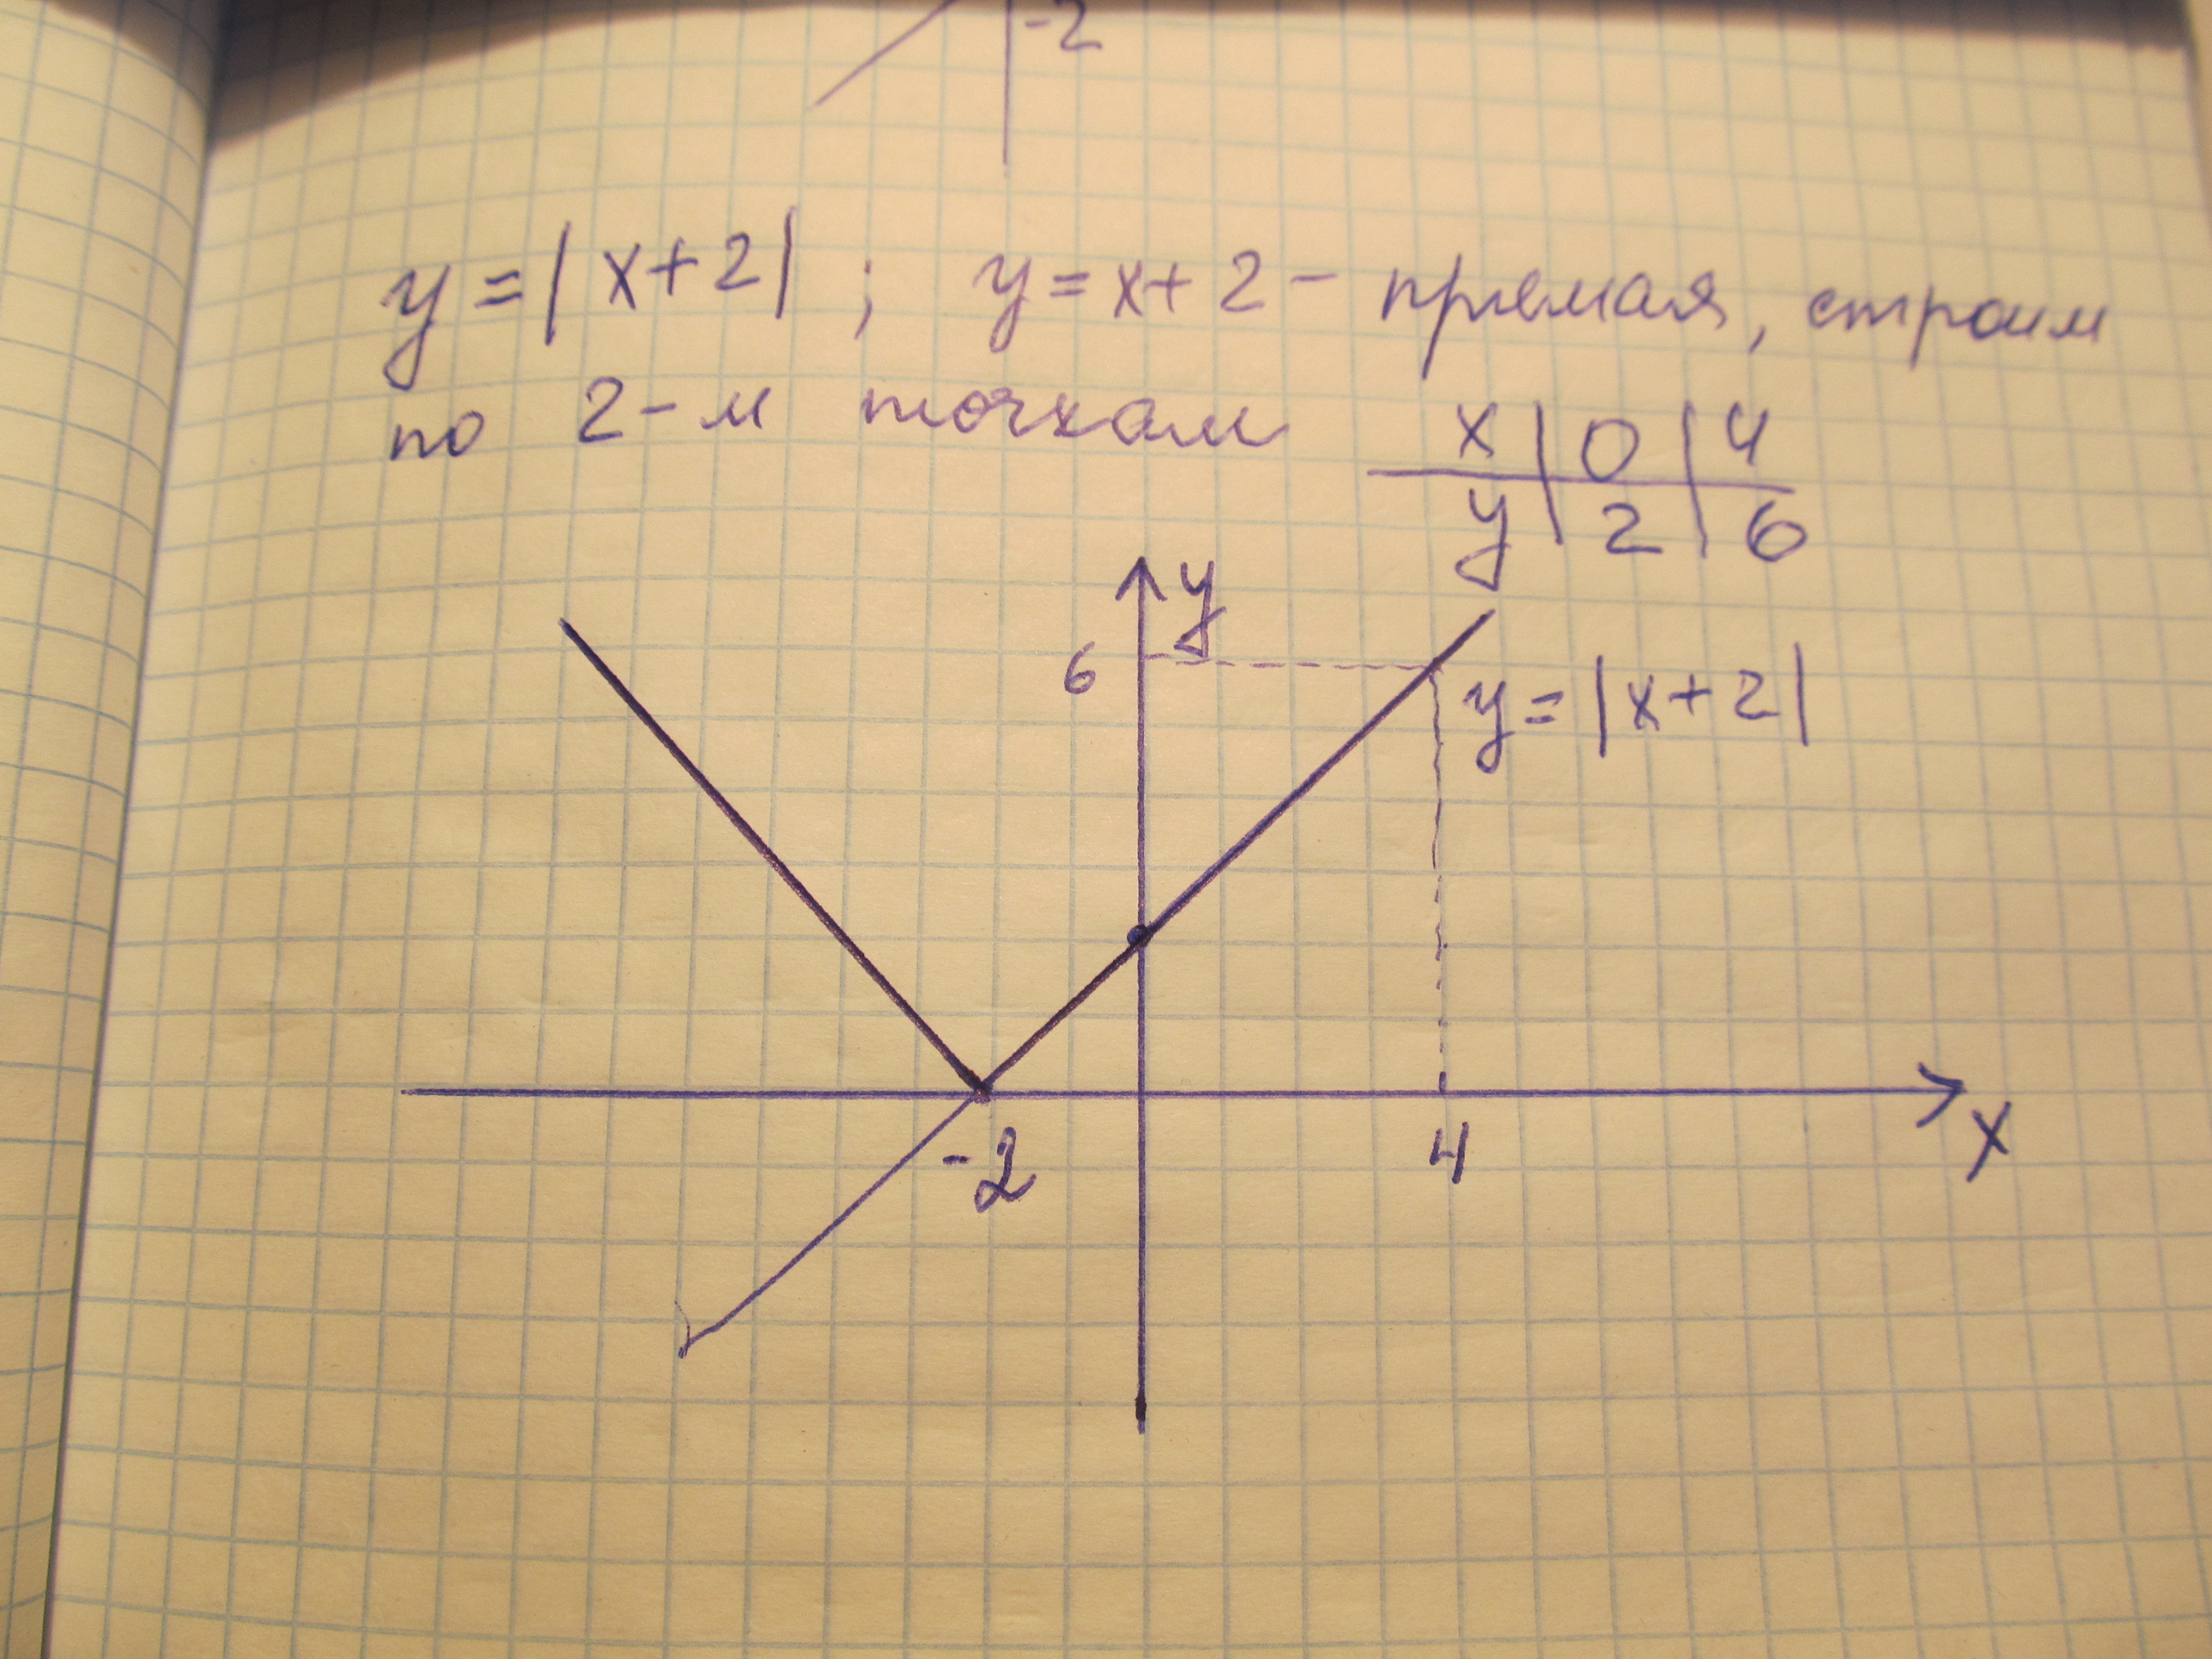 -2
y=|x+2| ; y=x+2 - прямая, строим
по 2-м точкам
x | 0 | 4
y | 2 | 6
y
6
y=|x+2|
-2
4
x